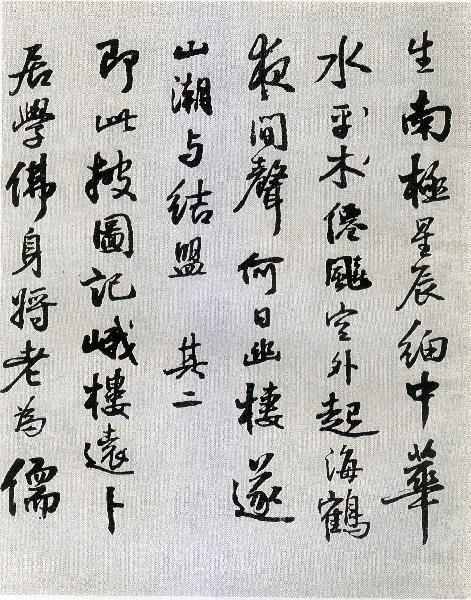 生南極星辰細中華
水平木僊飈空外起海鶴
夜間聲何日幽棲遂
山潮与結盟 其二
即此披圖記峨樓遠卜
居學佛身將老為儒